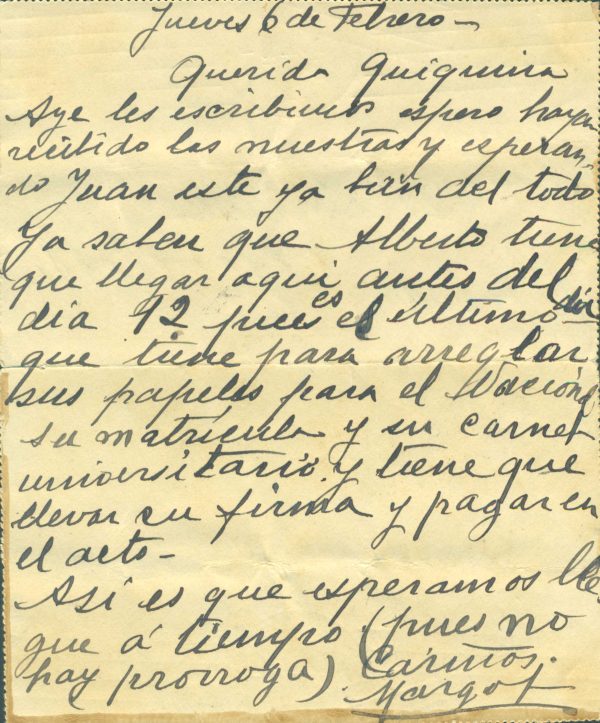 Jueves 6 de Febrero-
Querida Quiquina
Aye les escribimos espero hayan
recibido las nuestras y esperan-
do Juan este ya bien del todo
Ya saben que Alberto tiene
que llegar aqui antes del
dia 12 pues es el último día
que tiene para arreglar
sus papeles para el Nacional
su matrícula y su carnet
universitario y tiene que
llevar su firma y pagar en
el acto-
Asi es que esperamos lle-
gue á tiempo (pues no
hay prorroga) Cariños.
Margot